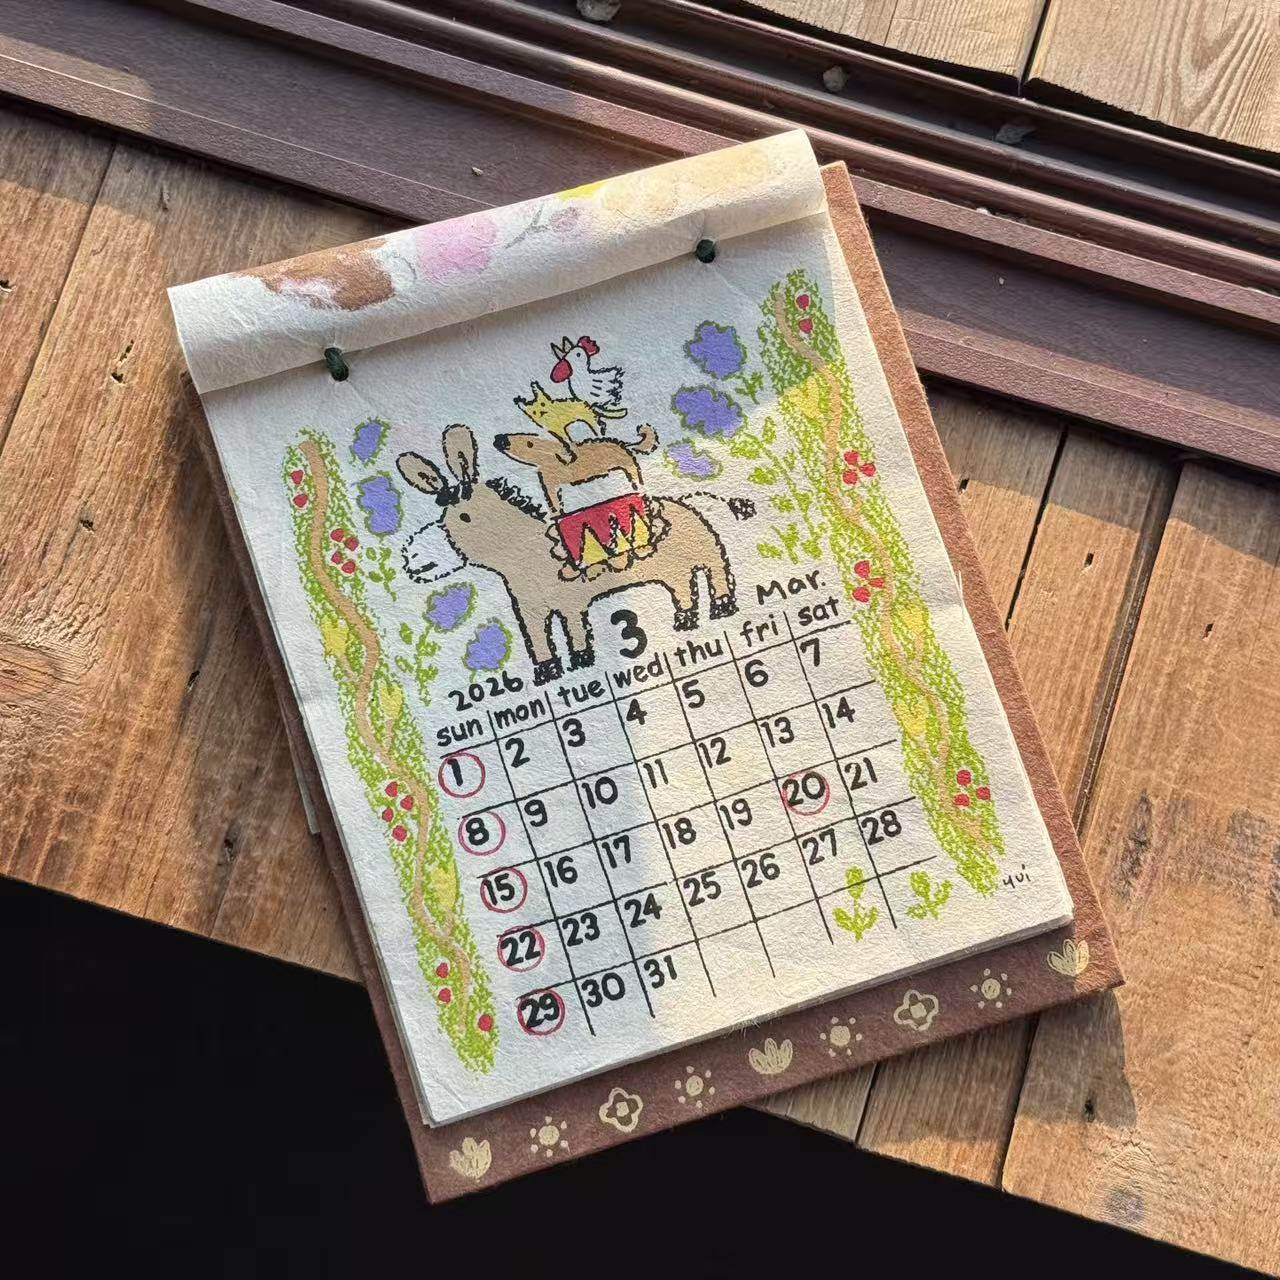 3
Mar.
2026
sun mon tue wed thu fri sat
1 2 3 4 5 6 7
8 9 10 11 12 13 14
15 16 17 18 19 20 21
22 23 24 25 26 27 28
29 30 31
yui